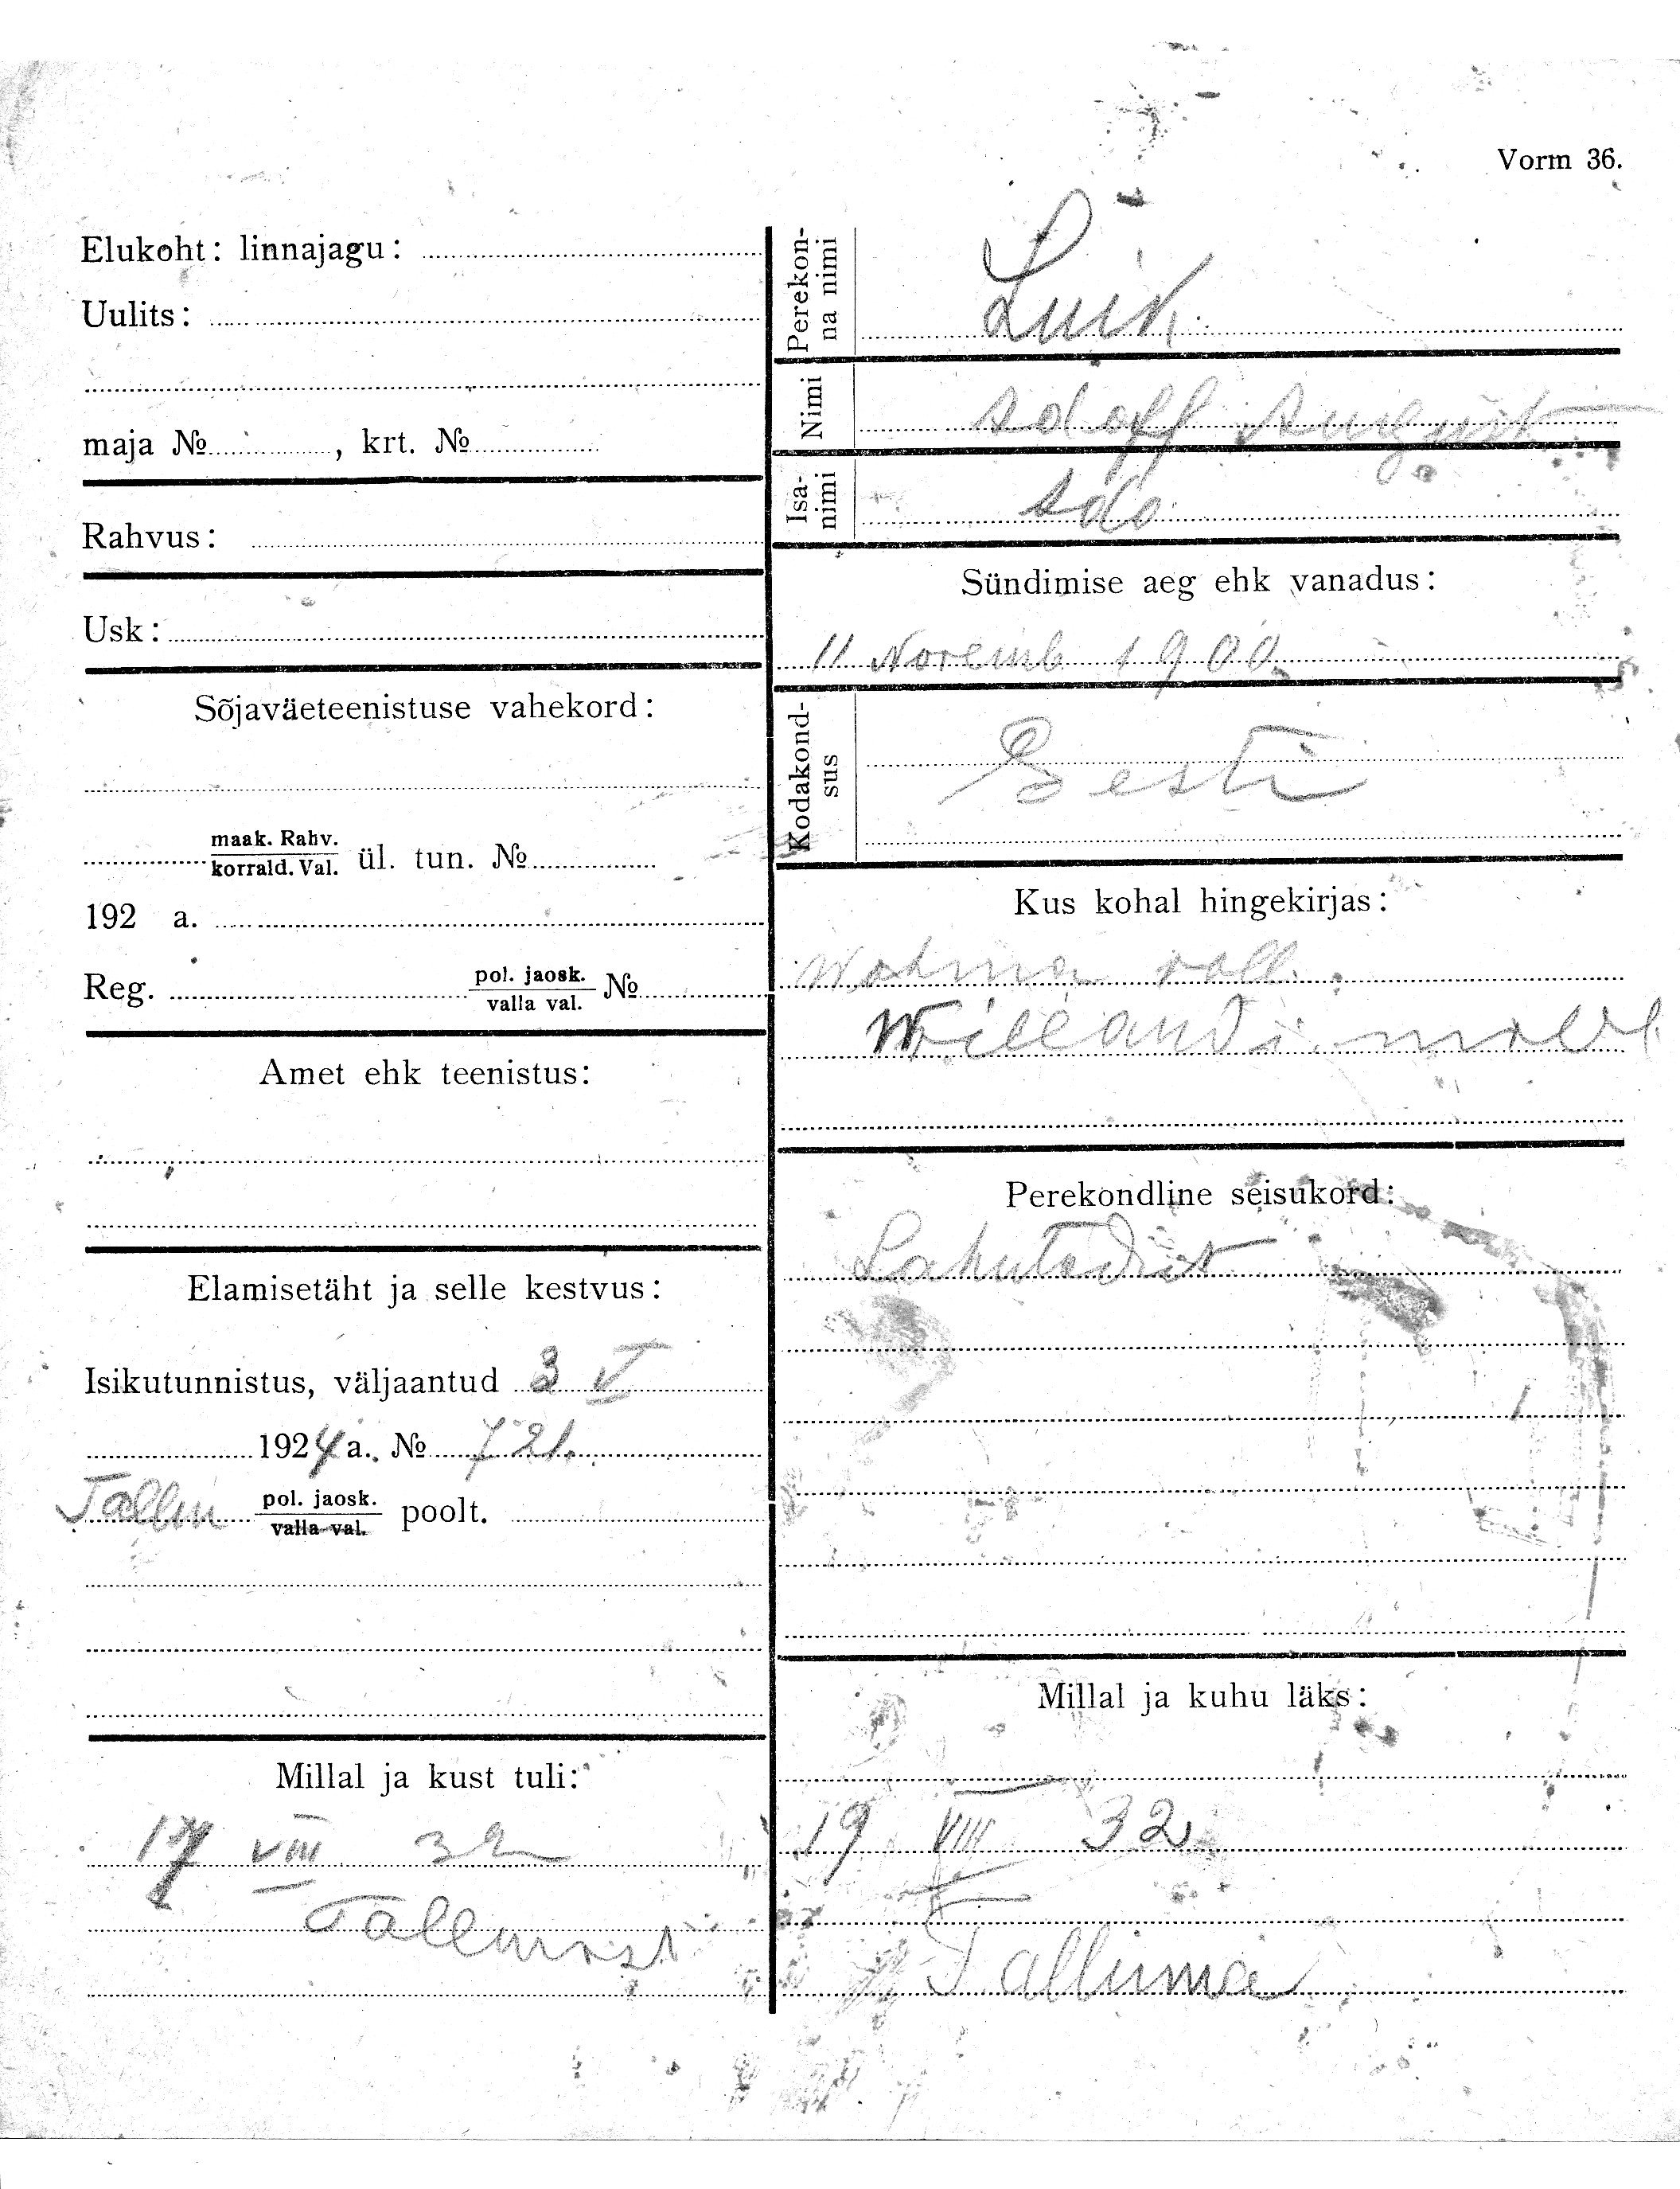 Vorm 36.
Elukoht: linnajagu:
Uulits:
maja №, krt. №
Rahvus:
Usk:
Sõjaväeteenistuse vahekord:
maak. Rahv.
korrald. Val. ül. tun. №
192 a.
Reg. pol. jaosk.
valla val. №
Amet ehk teenistus:
Elamisetäht ja selle kestvus:
Isikutunnistus, väljaantud 3 V
1924 a. № 721.
Tallin pol. jaosk.
valla val. poolt.
Millal ja kust tuli:
17 VIII 32
Tallinnast
Perekon-
na nimi
Luik
Nimi
Adolf August
Isa-
nimi
Ado
Sündimise aeg ehk vanadus:
11 Novemb 1900
Kodakond-
sus
Eesti
Kus kohal hingekirjas:
vall.
Williandi
Perekondline seisukord:
Lahutadut
Millal ja kuhu läks:
19 VIII 32
Tallinna